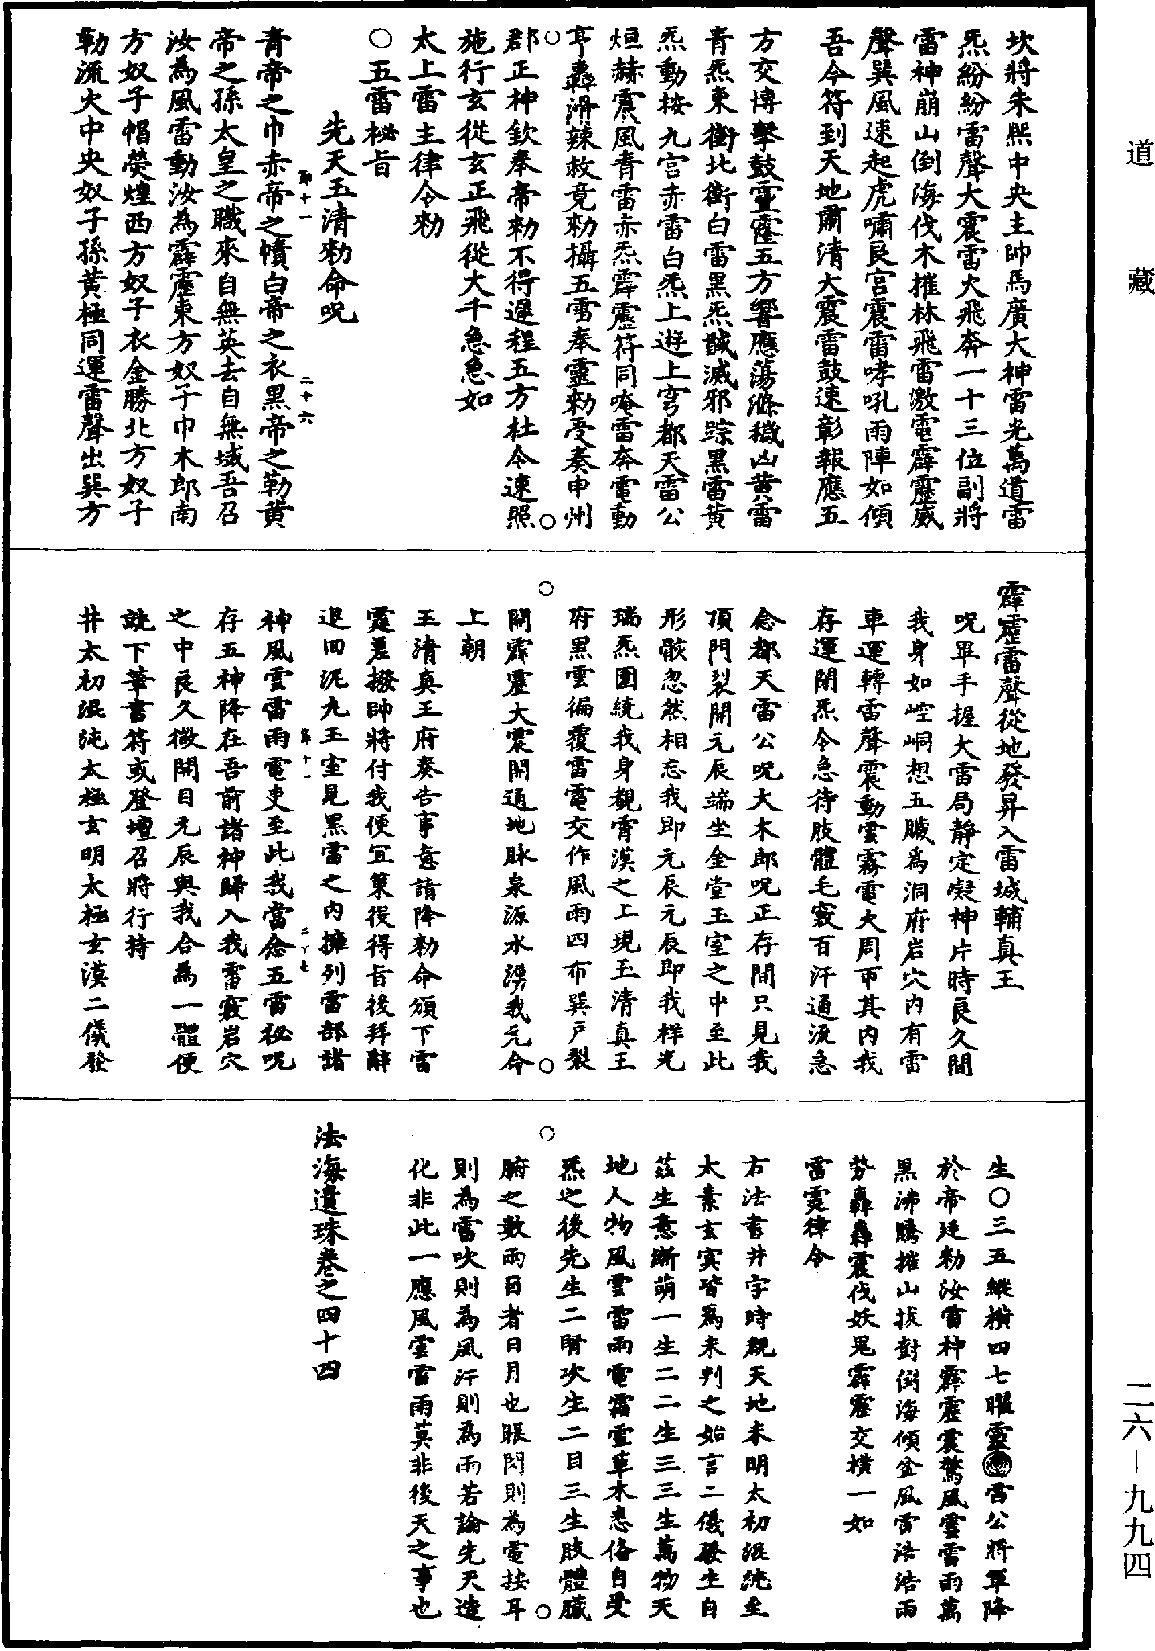 坎將朱熙中央主帥馬廣大神雷光萬道雷
炁紛紛雷聲大震雷火飛奔一十三位副將
雷神崩山倒海伐木摧林飛雷激電霹靂威
聲巽風速起虎嘯艮宮震雷哮吼雨陣如傾
吾令符到天地肅清大震雷鼓速彰報應五
方交愽擊鼓靈霳五方響應蕩滌穢凶黃雷
青炁東衝北衝白雷黑炁馘滅邪踪黑雷黃
炁動按九宮赤雷白炁上遊上穹都天雷公
烜赫震風青雷赤炁霹靂符同唵雷奔電動
亨轟滑辣敕竟勑攝五雷奉靈勑受奏申州
郡正神欽奉帝勑不得遲程五方社令速照
施行玄從玄正飛從大千急急如
太上雷主律令勑
○五雷秘旨
先天玉清勑命呪
青帝之巾赤帝之幘白帝之衣黑帝之勒黃
帝之孫太皇之職來自無英去自無域吾召
汝為風雷動汝為霹靂東方奴子巾木郎南
方奴子帽熒煌西方奴子衣金勝北方奴子
勒流火中央奴子孫黃極同運雷聲出巽方
霹靂雷聲從地發昇入雷城輔真王
呪畢手握大雷局靜定凝神片時良久間
我身如崆峒想五臟為洞府岩穴內有雷
車運轉雷聲震動雲霧電火周匝其內我
存運閉炁令急待肢體毛竅百汗通流急
念都天雷公呪大木郎呪正存間只見我
頂門裂開元辰端坐金堂玉室之中至此
形骸忽然相忘我即元辰元辰即我祥光
瑞炁圍繞我身觀霄漠之上現玉清真王
府黑雲徧覆雷電交作風雨四布巽戶裂
開霹靂大震開通地脉泉源水湧我元命
上朝
玉清真王府奏告事意請降勑命頒下雷
霆差撥帥將付我便宜策役得旨後拜辭
退回泥丸玉室見黑雷之內擁列雷部諸
神風雲雷雨電吏至此我當念五雷秘呪
存五神降在吾前諸神歸入我雷竅岩穴
之中良久微開目元辰與我合為一體便
就下筆書符或登壇召將行持
井太初混沌太極玄明太極玄漠二儀發
生○三五縱橫四七曜靈雷公將軍降
於帝廷勑汝雷神霹靂震驚風雲雷雨萬
黑沸騰摧山拔對倒海傾盆風雷浩浩雨
勢轟轟震伐妖鬼霹靂交橫一如
雷霆律令
右法書井字時觀天地未明太初混沌至
太素玄冥皆為未判之始言二儀發生自
茲生意漸萌一生二二生三三生萬物天
地人物風雲雷雨電霜雪草木悉俻自受
炁之後先生二腎次生二目三生肢體臟
腑之數兩目者日月也眼閃則為電按耳
則為雷吹則為風汗則為雨若論先天造
化非此一應風雲雷雨莫非後天之事也
法海遺珠卷之四十四
道藏
二六—九九四